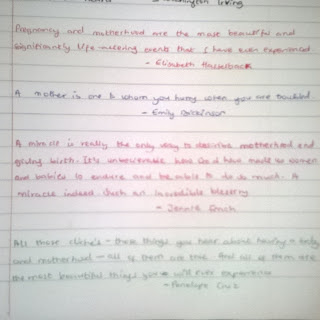 Pregnancy and motherhood are the most beautiful and
significantly life-altering events that I have ever experienced.
- Elisabeth Hasselback
A mother is one to whom you hurry when you are troubled.
- Emily Dickinson
A miracle is really the only way to describe motherhood and
giving birth. It's unbelievable how God has made us women
and babies to endure and be able to do so much. A
miracle indeed. Such an incredible blessing
- Jennie Finch
All those clichés - those things you hear about having a baby
and motherhood - all of them are true. And all of them are
the most beautiful things you will ever experience
- Penelope Cruz